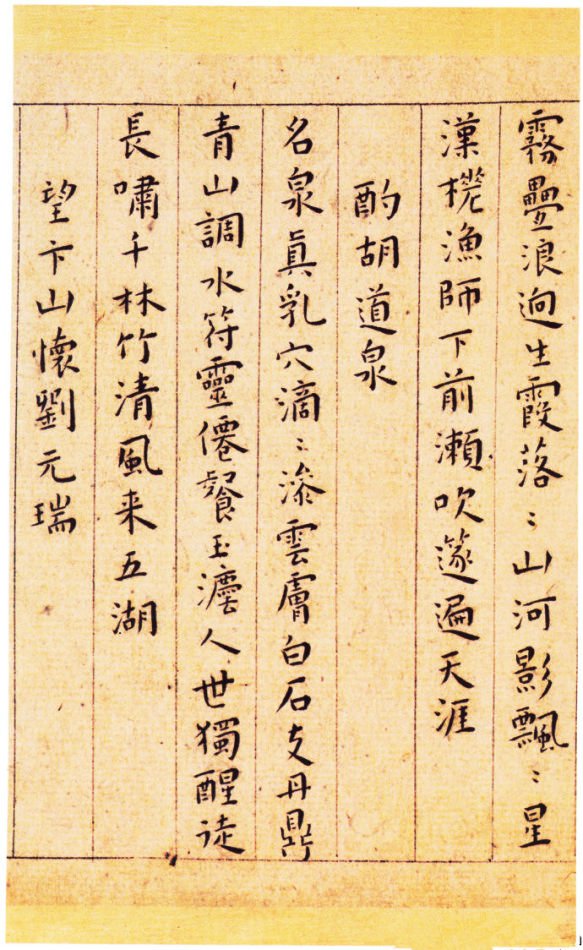 霧疊浪迴生霞落〻山河影飄〻星
漢槎漁師下前瀨吹篴遍天涯
酌胡道泉
名泉真乳穴滴〻滲雲膚白石支丹鼎
青山調水符靈僊餐玉瀣人世獨醒徒
長嘯千林竹清風来五湖
望卞山懷劉元瑞